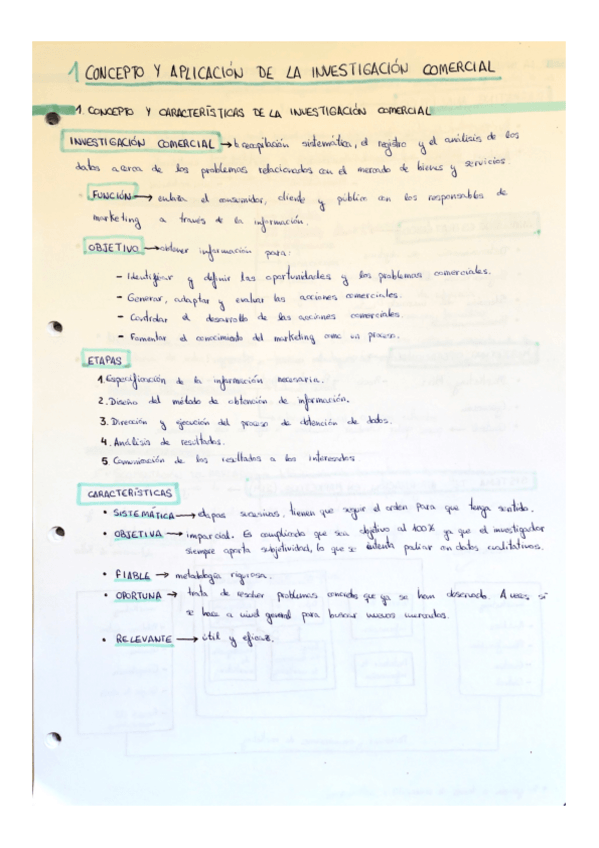 1 CONCEPTO Y APLICACIÓN DE LA INVESTIGACIÓN COMERCIAL
1. CONCEPTO Y CARACTERÍSTICAS DE LA INVESTIGACIÓN COMERCIAL
INVESTIGACIÓN COMERCIAL → la recopilación sistemática, el registro y el análisis de los
datos acerca de los problemas relacionados con el mercado de bienes y servicios.
FUNCIÓN → enlaza el consumidor, cliente y público con los responsables de
marketing a través de la información.
OBJETIVO → obtener información para:
- Identificar y definir las oportunidades y los problemas comerciales.
- Generar, adaptar y evaluar las acciones comerciales.
- Controlar el desarrollo de las acciones comerciales.
- Fomentar el conocimiento del marketing como un proceso.
ETAPAS
1. Especificación de la información necesaria.
2. Diseño del método de obtención de información.
3. Dirección y ejecución del proceso de obtención de datos.
4. Análisis de resultados.
5. Comunicación de los resultados a los interesados
CARACTERÍSTICAS
• SISTEMÁTICA → etapas sucesivas, tienen que seguir el orden para que tenga sentido.
• OBJETIVA → imparcial. Es complicado que sea objetivo al 100% ya que el investigador
siempre aporta subjetividad, lo que se intenta paliar con datos cualitativos.
• FIABLE → metodología rigurosa.
• OPORTUNA → trata de resolver problemas concretos que ya se han observado. A veces si
se hace a nivel general para buscar nuevos mercados.
• RELEVANTE → útil y eficaz.